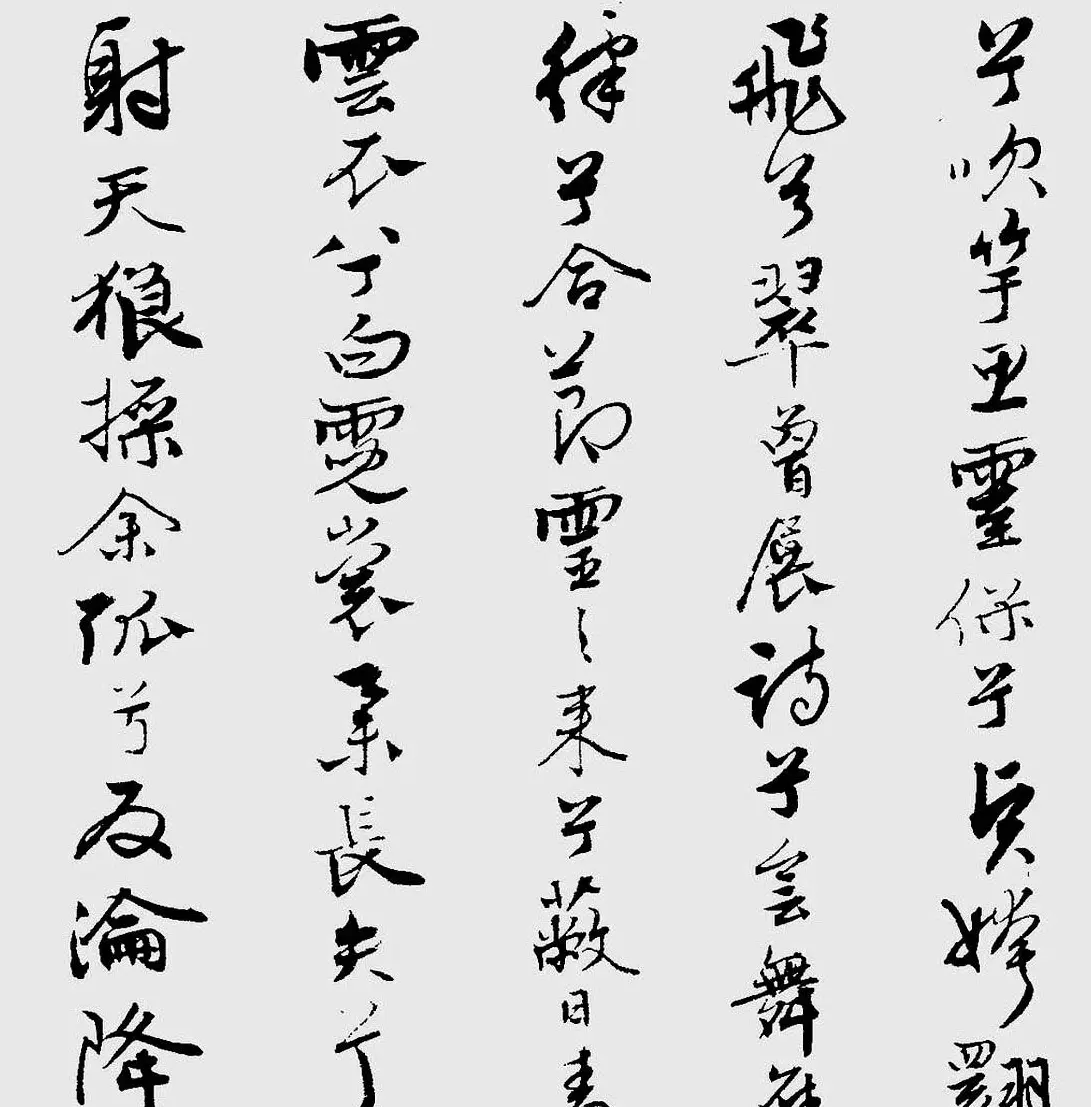 兮吹竽思靈保兮賢姱翾
飛兮翠曾展詩兮會舞應
律兮合節靈之來兮蔽日青
雲衣兮白霓裳舉長矢兮
射天狼操余弧兮反淪降